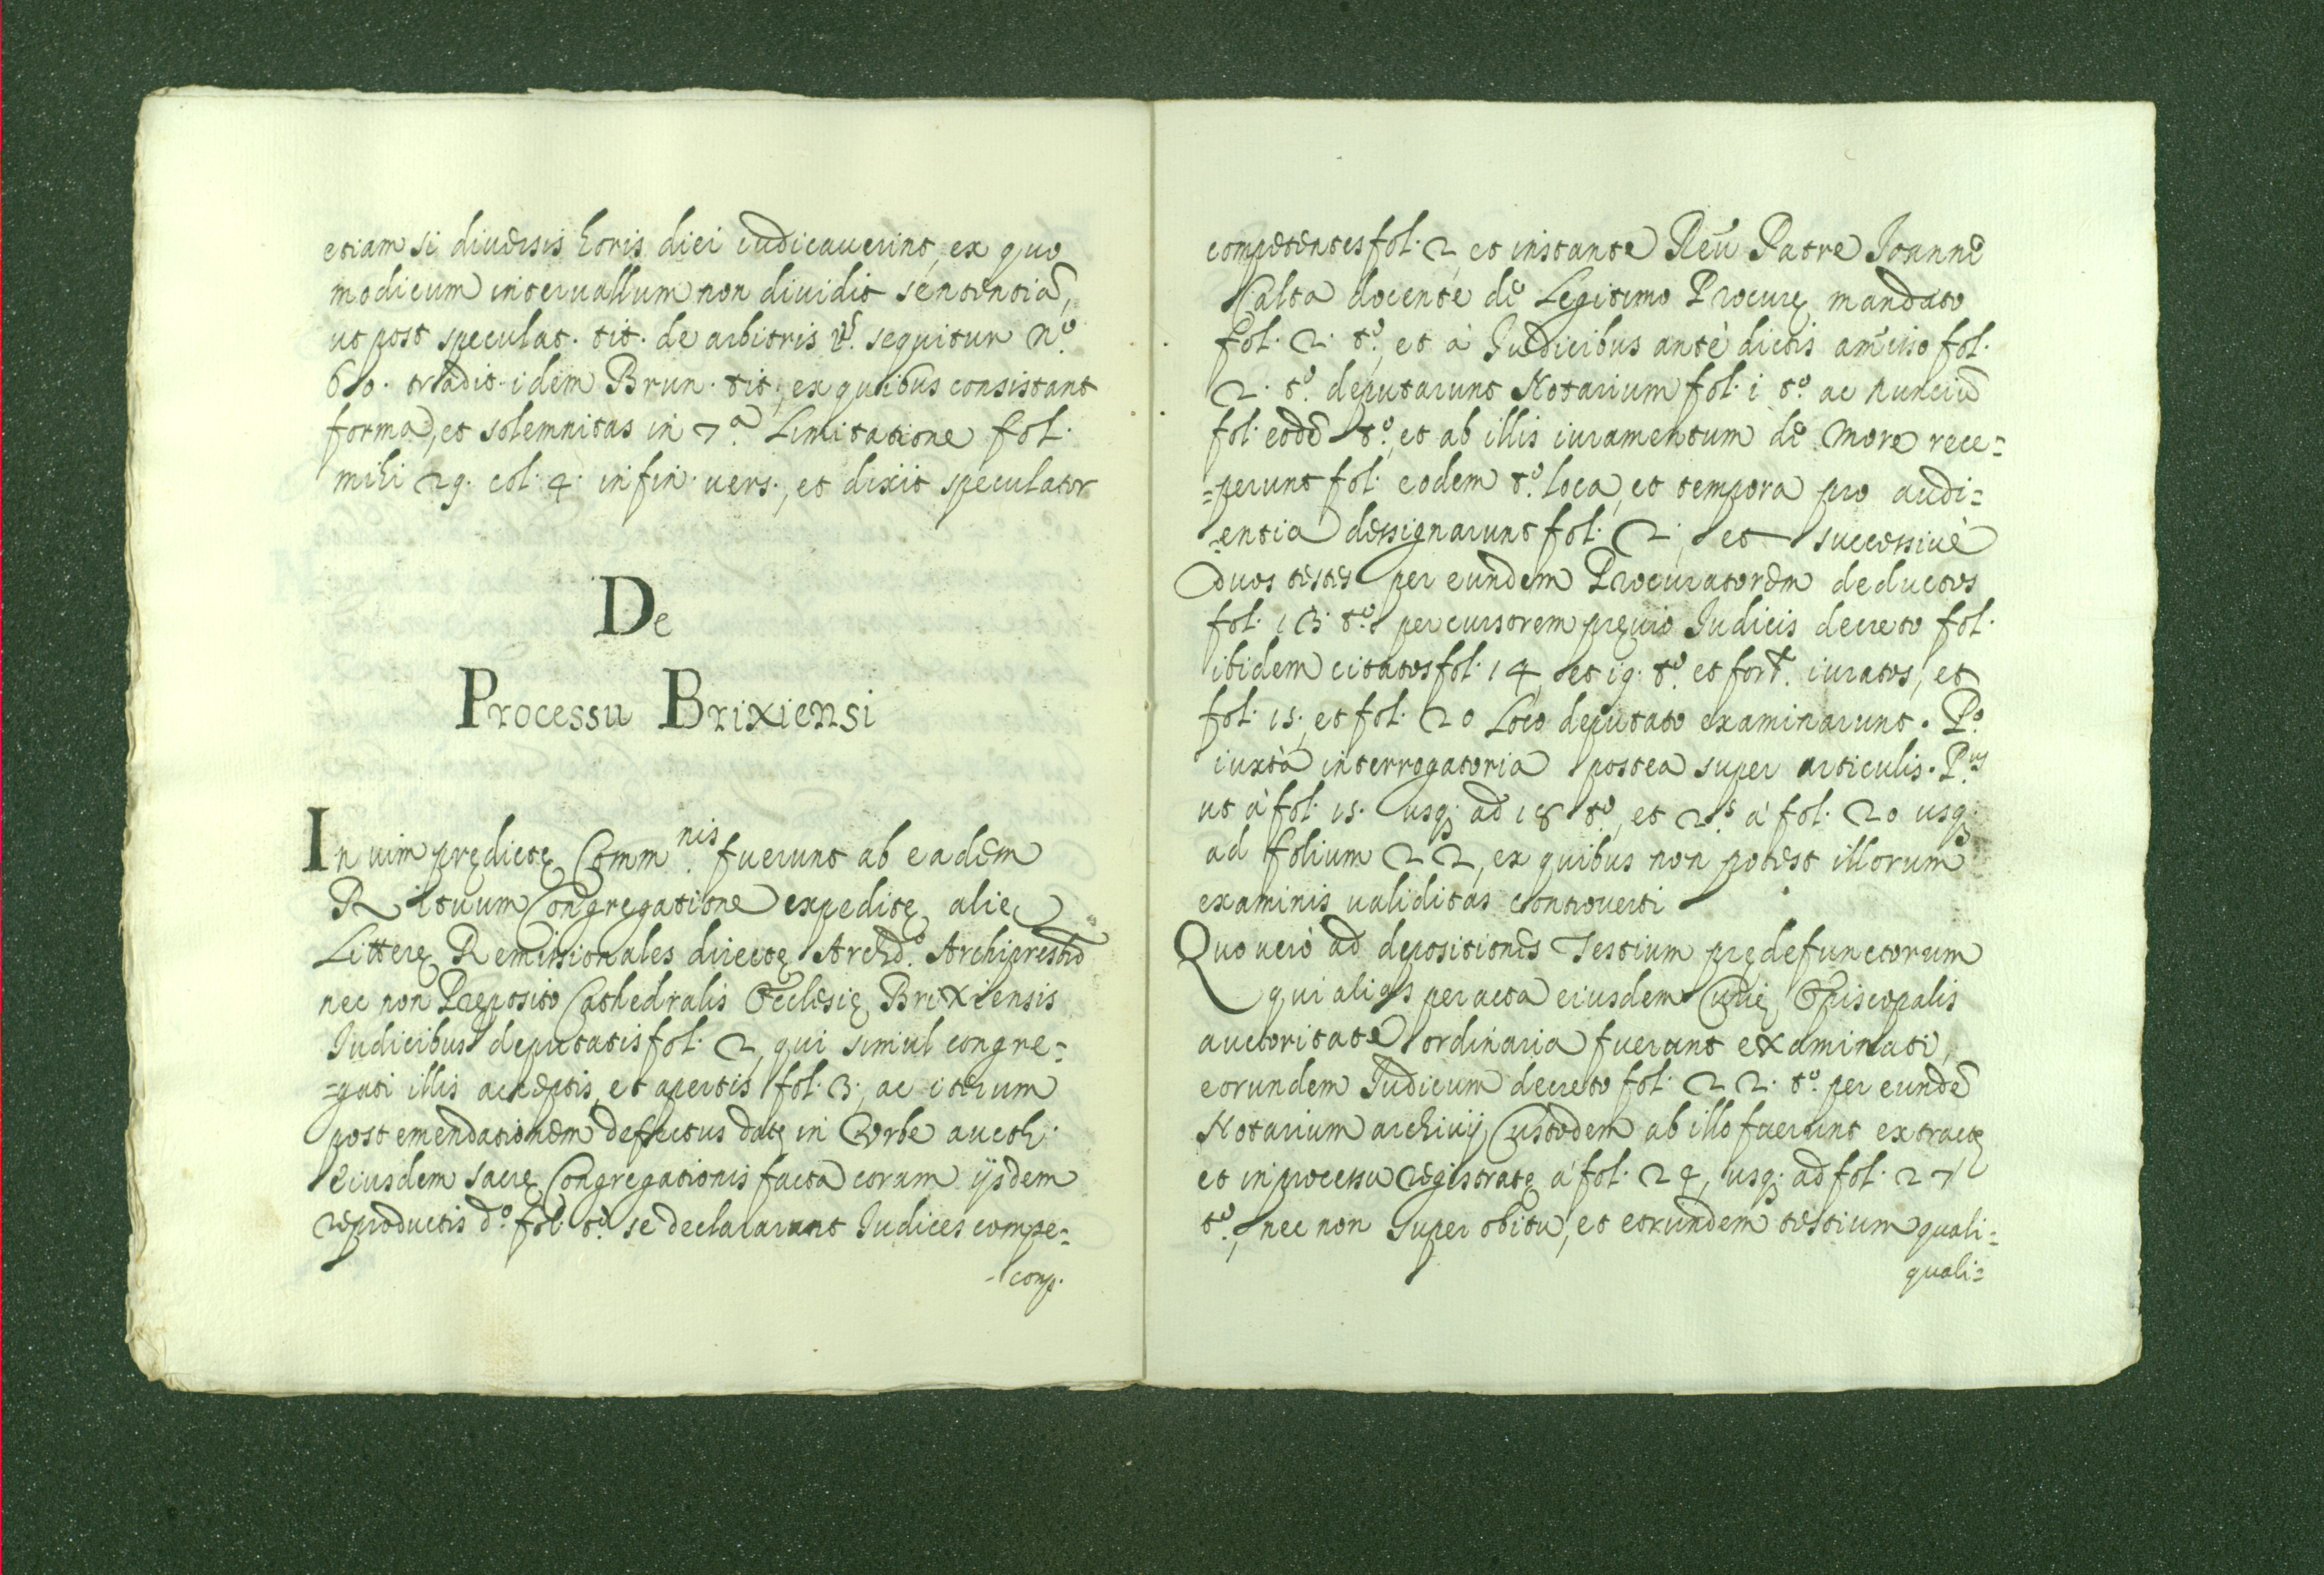 etiam si diuersis horis diei iudicauerint, ex quo
modicum interuallum non diuidit sententiã,
ut post speculat. tit. de arbitris v.s sequitur n.º
60. tradit idem Brun. tit. ex quibus consistant
forma, et solemnitas in 7.ª Limitatione fol.
mihi 29. col. 4. in fin. uers., et dixit speculator
De
Processu Brixiensi
In uim prędictę Comm.nis fuerunt ab eadem
Rituum Congregatione expeditę alię
Litterę Remissionales directę Archid.º Archipresbrõ
nec non Pręposito Cathedralis Ecclesię Brixiensis
Iudicibus deputatis fol. 2, qui simul congre=
=gati illis acceptis, et apertis fol. 3, ac iterum
post emendationem defectus datę in Vrbe aucth.
eiusdem sacrę Congregationis facta coram ijsdem
reproductis d.º fol. t.º se declararunt Iudices compe=
comp.
competentes fol. 2, et instante Reũ Patre Ioanne
Calta docente de Legitimo Procurę mandato
fol. 2. t.º, et à Iudicibus antè dictis am̃isso fol.
2. t.º deputarunt Notarium fol. i t.º ac nunciũ
fol. eodẽ t.º, et ab illis iuramentum de more rece=
=perunt fol. eodem t.º loca, et tempora pro audi=
entia designarunt fol. 2, et successiuè
duos testes per eundem Procuratorem deductos
fol. 13. t.º per cursorem pręuio Iudicis decreto fol.
ibidem citatos fol. 14, et 19. t.º et for.r iuratos, et
fol. 15. et fol. 20 Loco deputato examinarunt. P.º
iuxtà interrogatoria postea super articulis. P.us
ut à fol. 15. usq; ad 18 t.º, et 2.s à fol. 20 usq;
ad folium 22, ex quibus non potest illorum
examinis ualiditas controuerti
Quo verò ad depositiones Testium prędefunctorum
qui alias per acta eiusdem Curię Episcopalis
auctoritate ordinaria fuerunt examinati,
eorundem Iudicum decreto fol. 22. t.º per eundẽ
Notarium archiuij Custodem ab illo fuerunt extractę
et in processu registratę à fol. 24, usq; ad fol. 27
t.º, nec non super obitu, et eorundem testium quali=
quali=